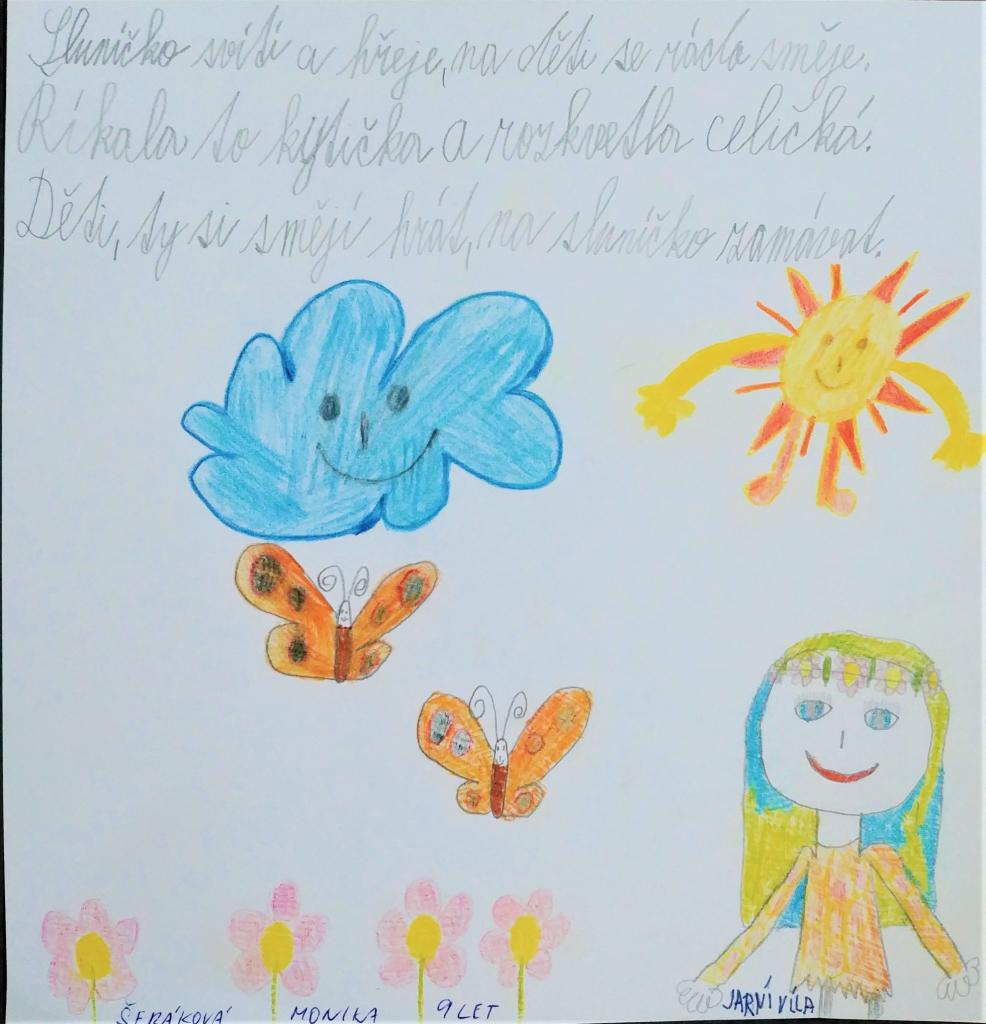 Sluníčko svítí a hřeje, na děti se ráda směje.
Říkala to kytička a rozkvetla celičká.
Děti, ty si smějí hrát, na sluníčko zamávat.
ŠERÁKOVÁ MONIKA 9 LET
JARNÍ VÍLA